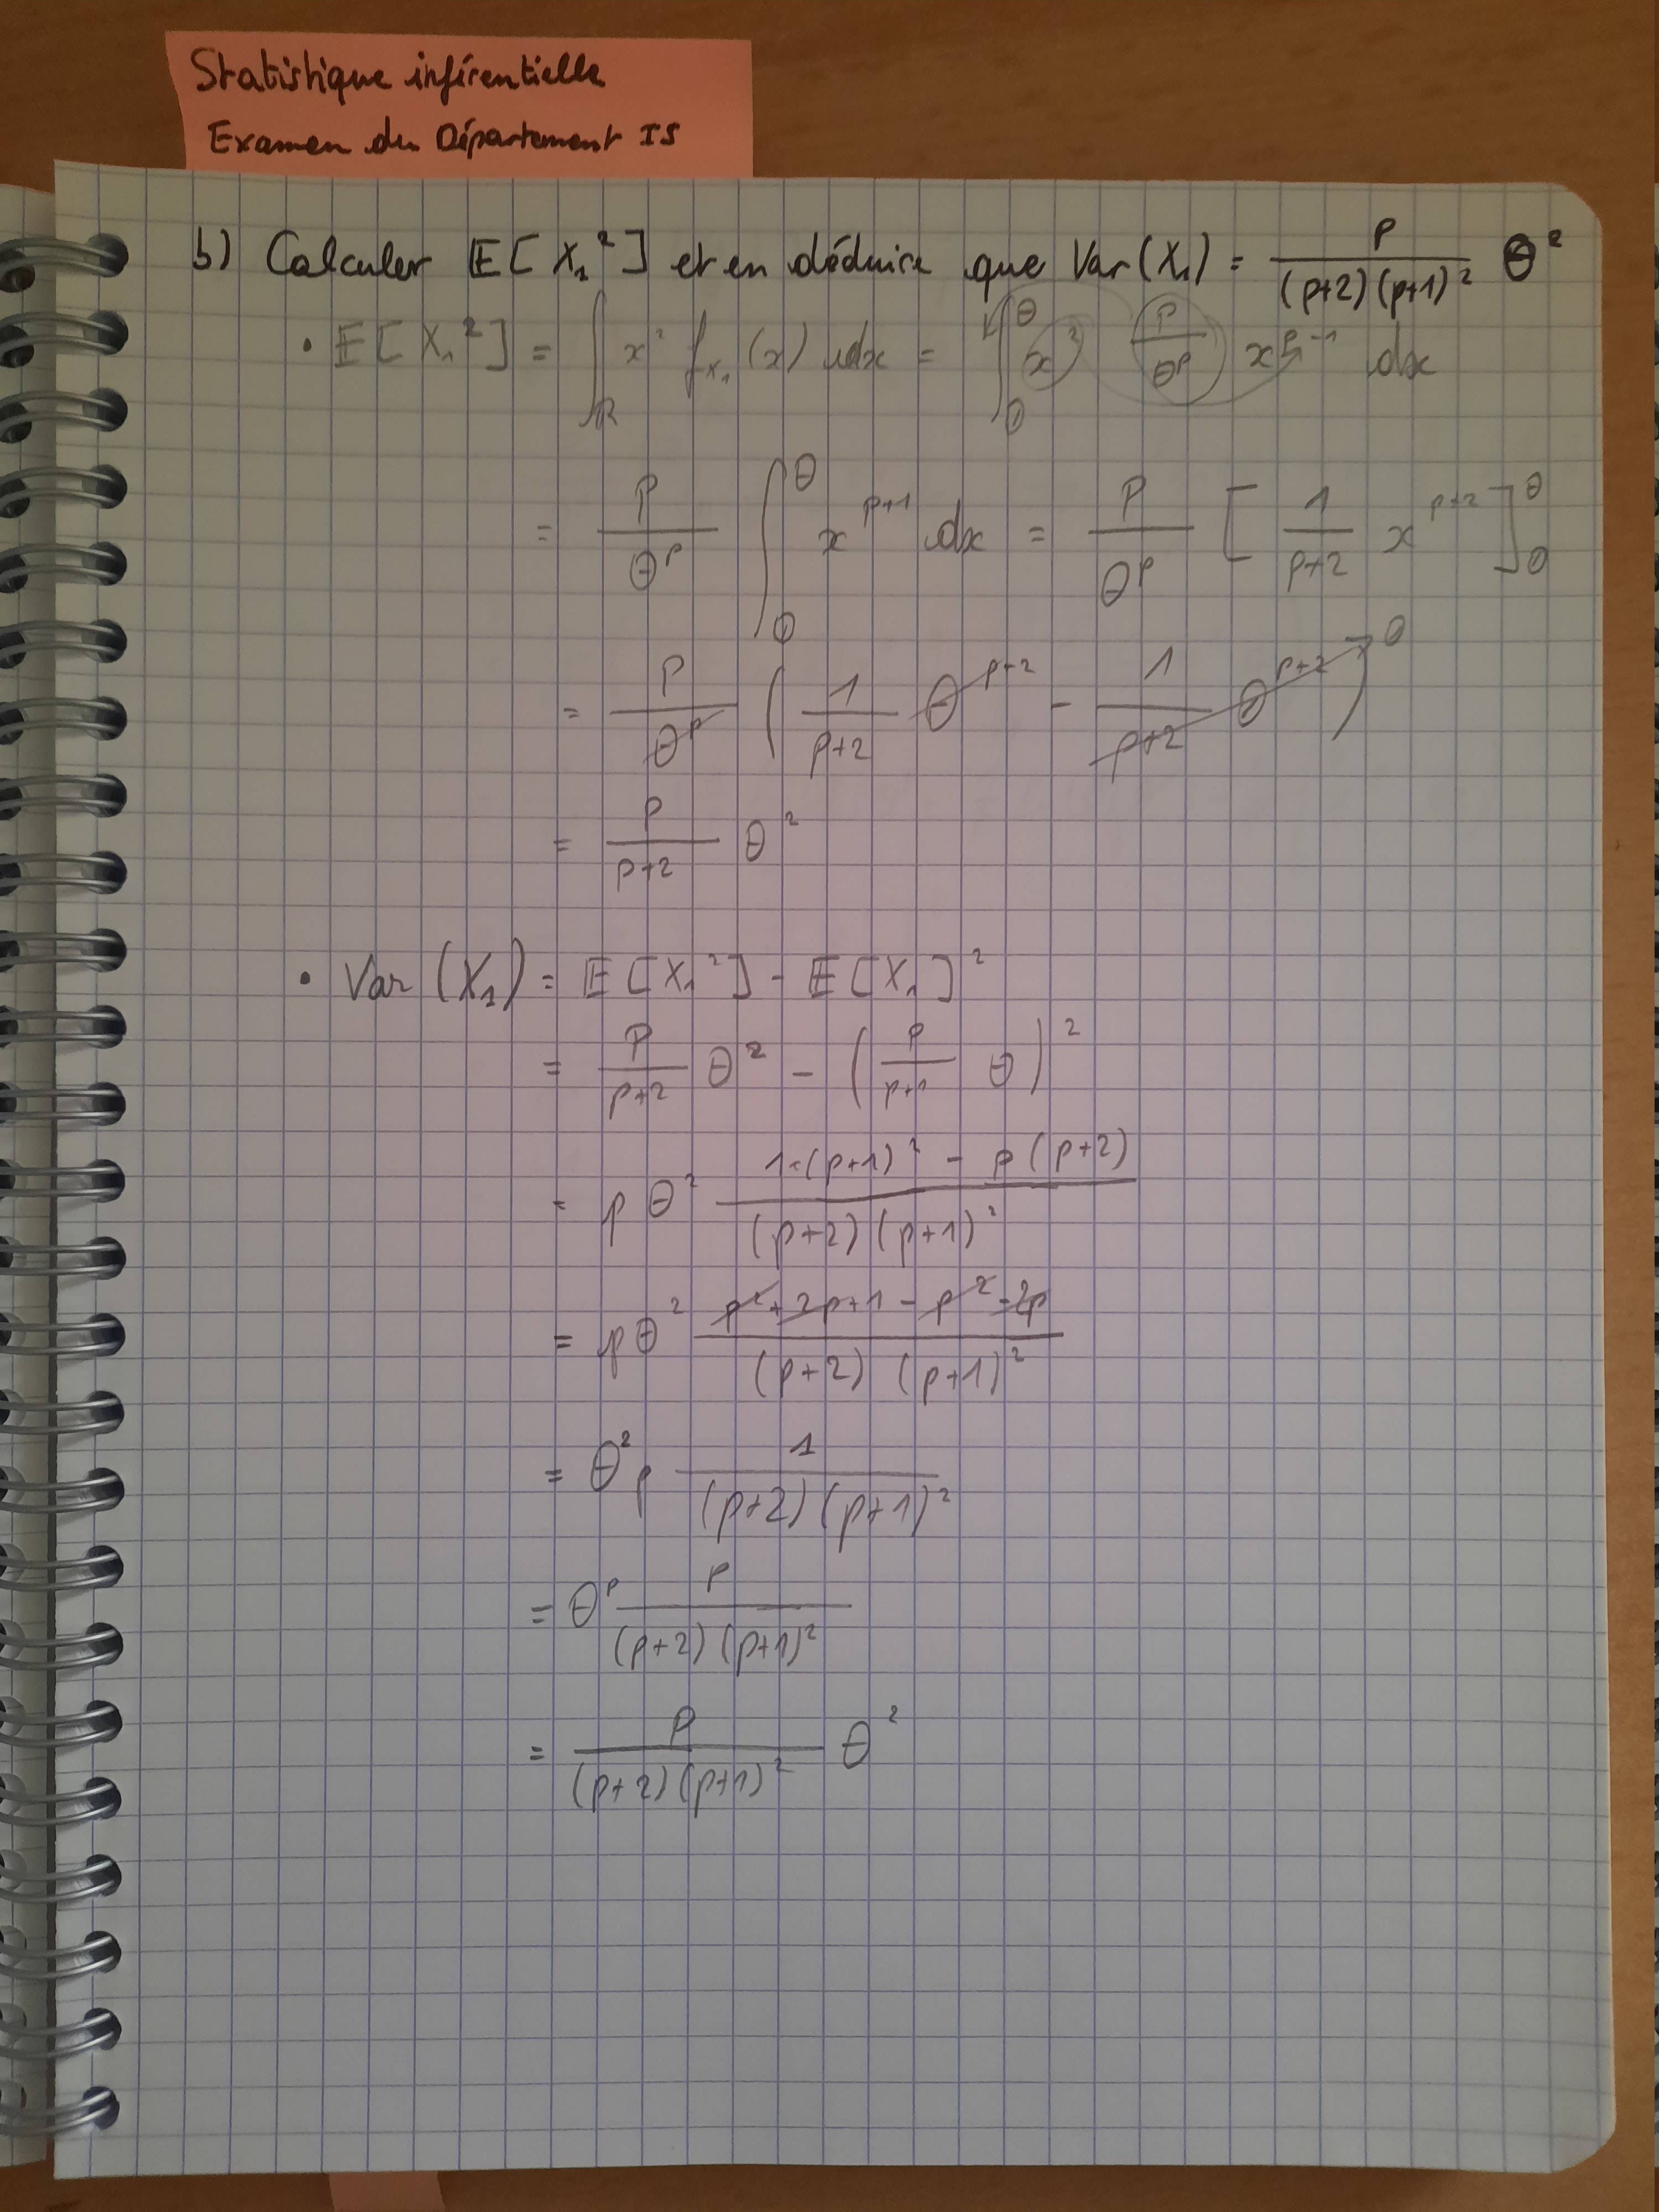 Statistique inférentielle
Examen du Département IS
b) Calculer 𝔼[X₁²] et en déduire que Var(X₁) = p / ((p+2)(p+1)²) θ²
• 𝔼[X₁²] = ∫_ℝ x² f_{X₁}(x) dx = ∫_0^θ x² p/θ^p x^{p-1} dx
= p/θ^p ∫_0^θ x^{p+1} dx = p/θ^p [ 1/(p+2) x^{p+2} ]_0^θ
= p/θ^p ( 1/(p+2) θ^{p+2} - 1/(p+2) 0^{p+2} ) 0
= p/(p+2) θ²
• Var(X₁) = 𝔼[X₁²] - 𝔼[X₁]²
= p/(p+2) θ² - ( p/(p+1) θ )²
= p θ² (1×(p+1)² - p(p+2)) / ((p+2)(p+1)²)
= p θ² (p²+2p+1-p²-2p) / ((p+2)(p+1)²)
= θ² p 1 / ((p+2)(p+1)²)
= θ^p p / ((p+2)(p+1)²)
= p / ((p+2)(p+1)²) θ²